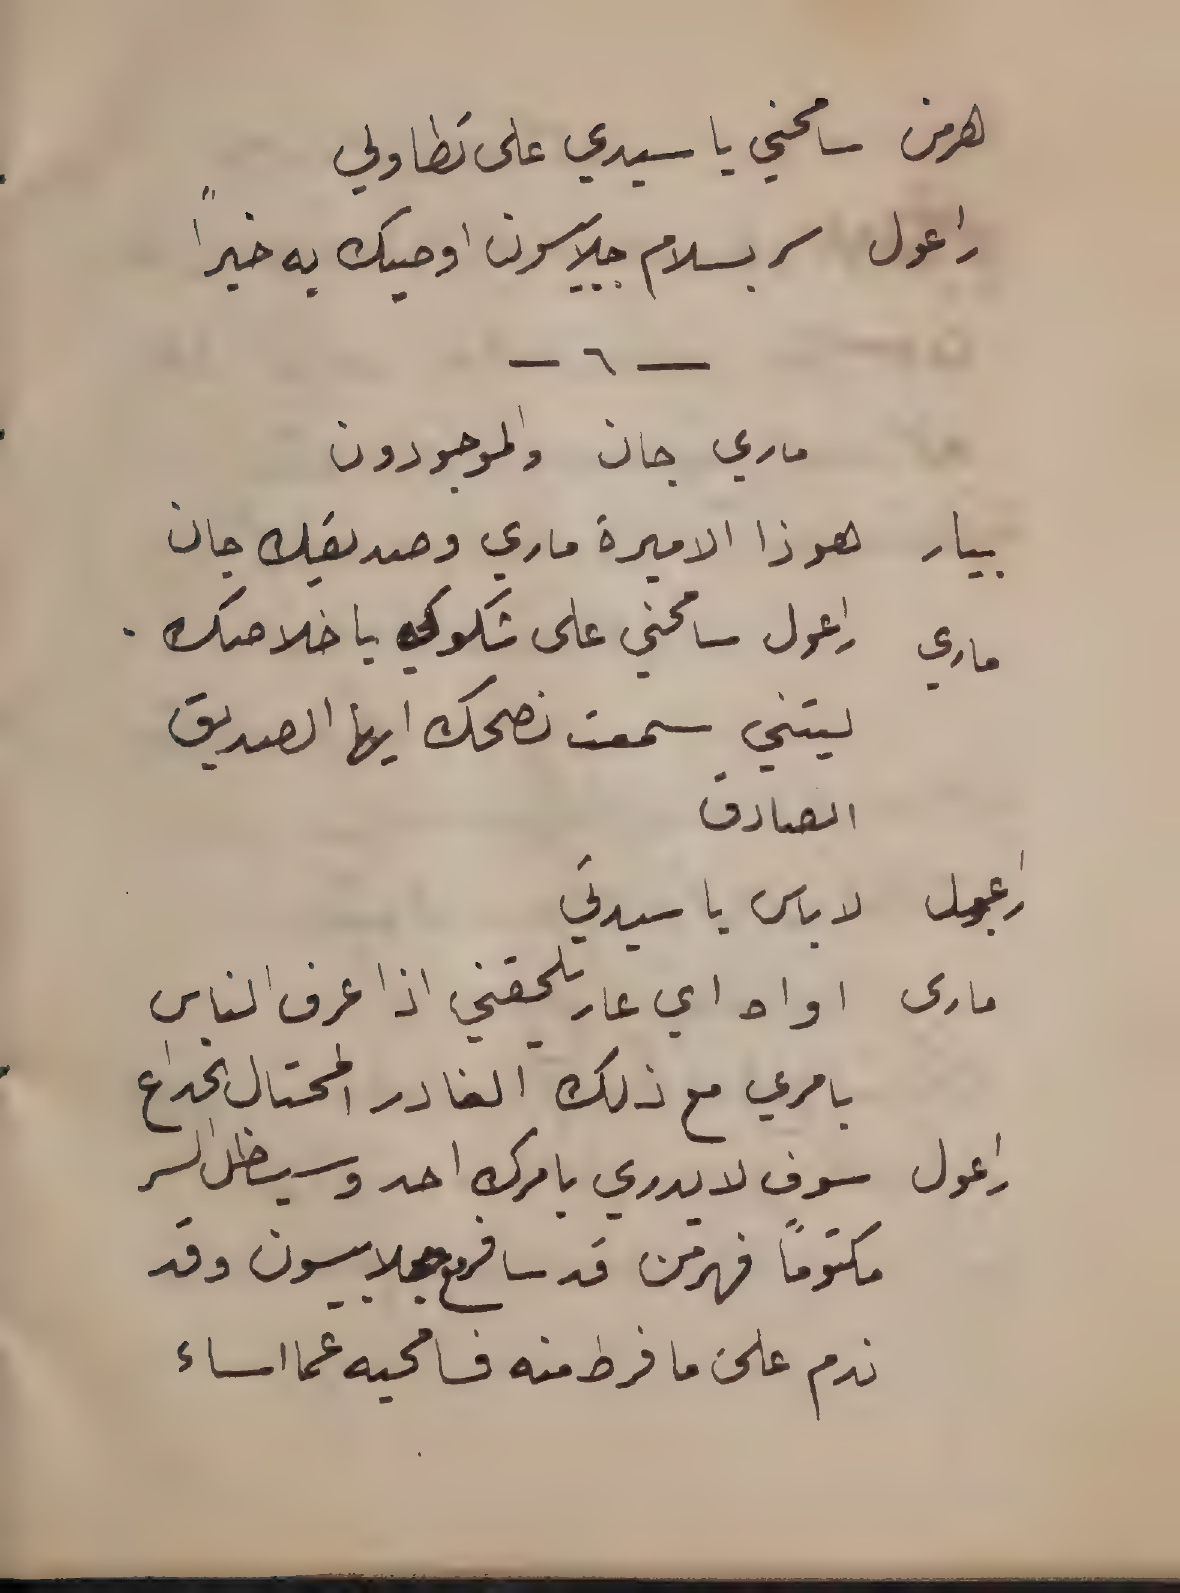 هرمن سامحني يا سيدي على تطاولي
راعول سر بسلام جلاسيون اوصيك به خيراً
— ٦ —
ماري جان والموجودون
بيار هوذا الاميرة ماري وصديقك جان
ماري راعول سامحني على شكوكي باخلاصك .
ليتني سمعت نصحك ايها الصديق
الصادق
راعول لا باس يا سيدتي
مارى اواه اي عار تلحقني اذا عرف الناس
بامري مع ذلك الغادر المحتال الخداع
راعول سوف لا يدري بامرك احد وسيظل السر
مكتوماً فهرمن قد سافر مع جلاسيون وقد
ندم على ما فرط منه فسامحيه عما اساء